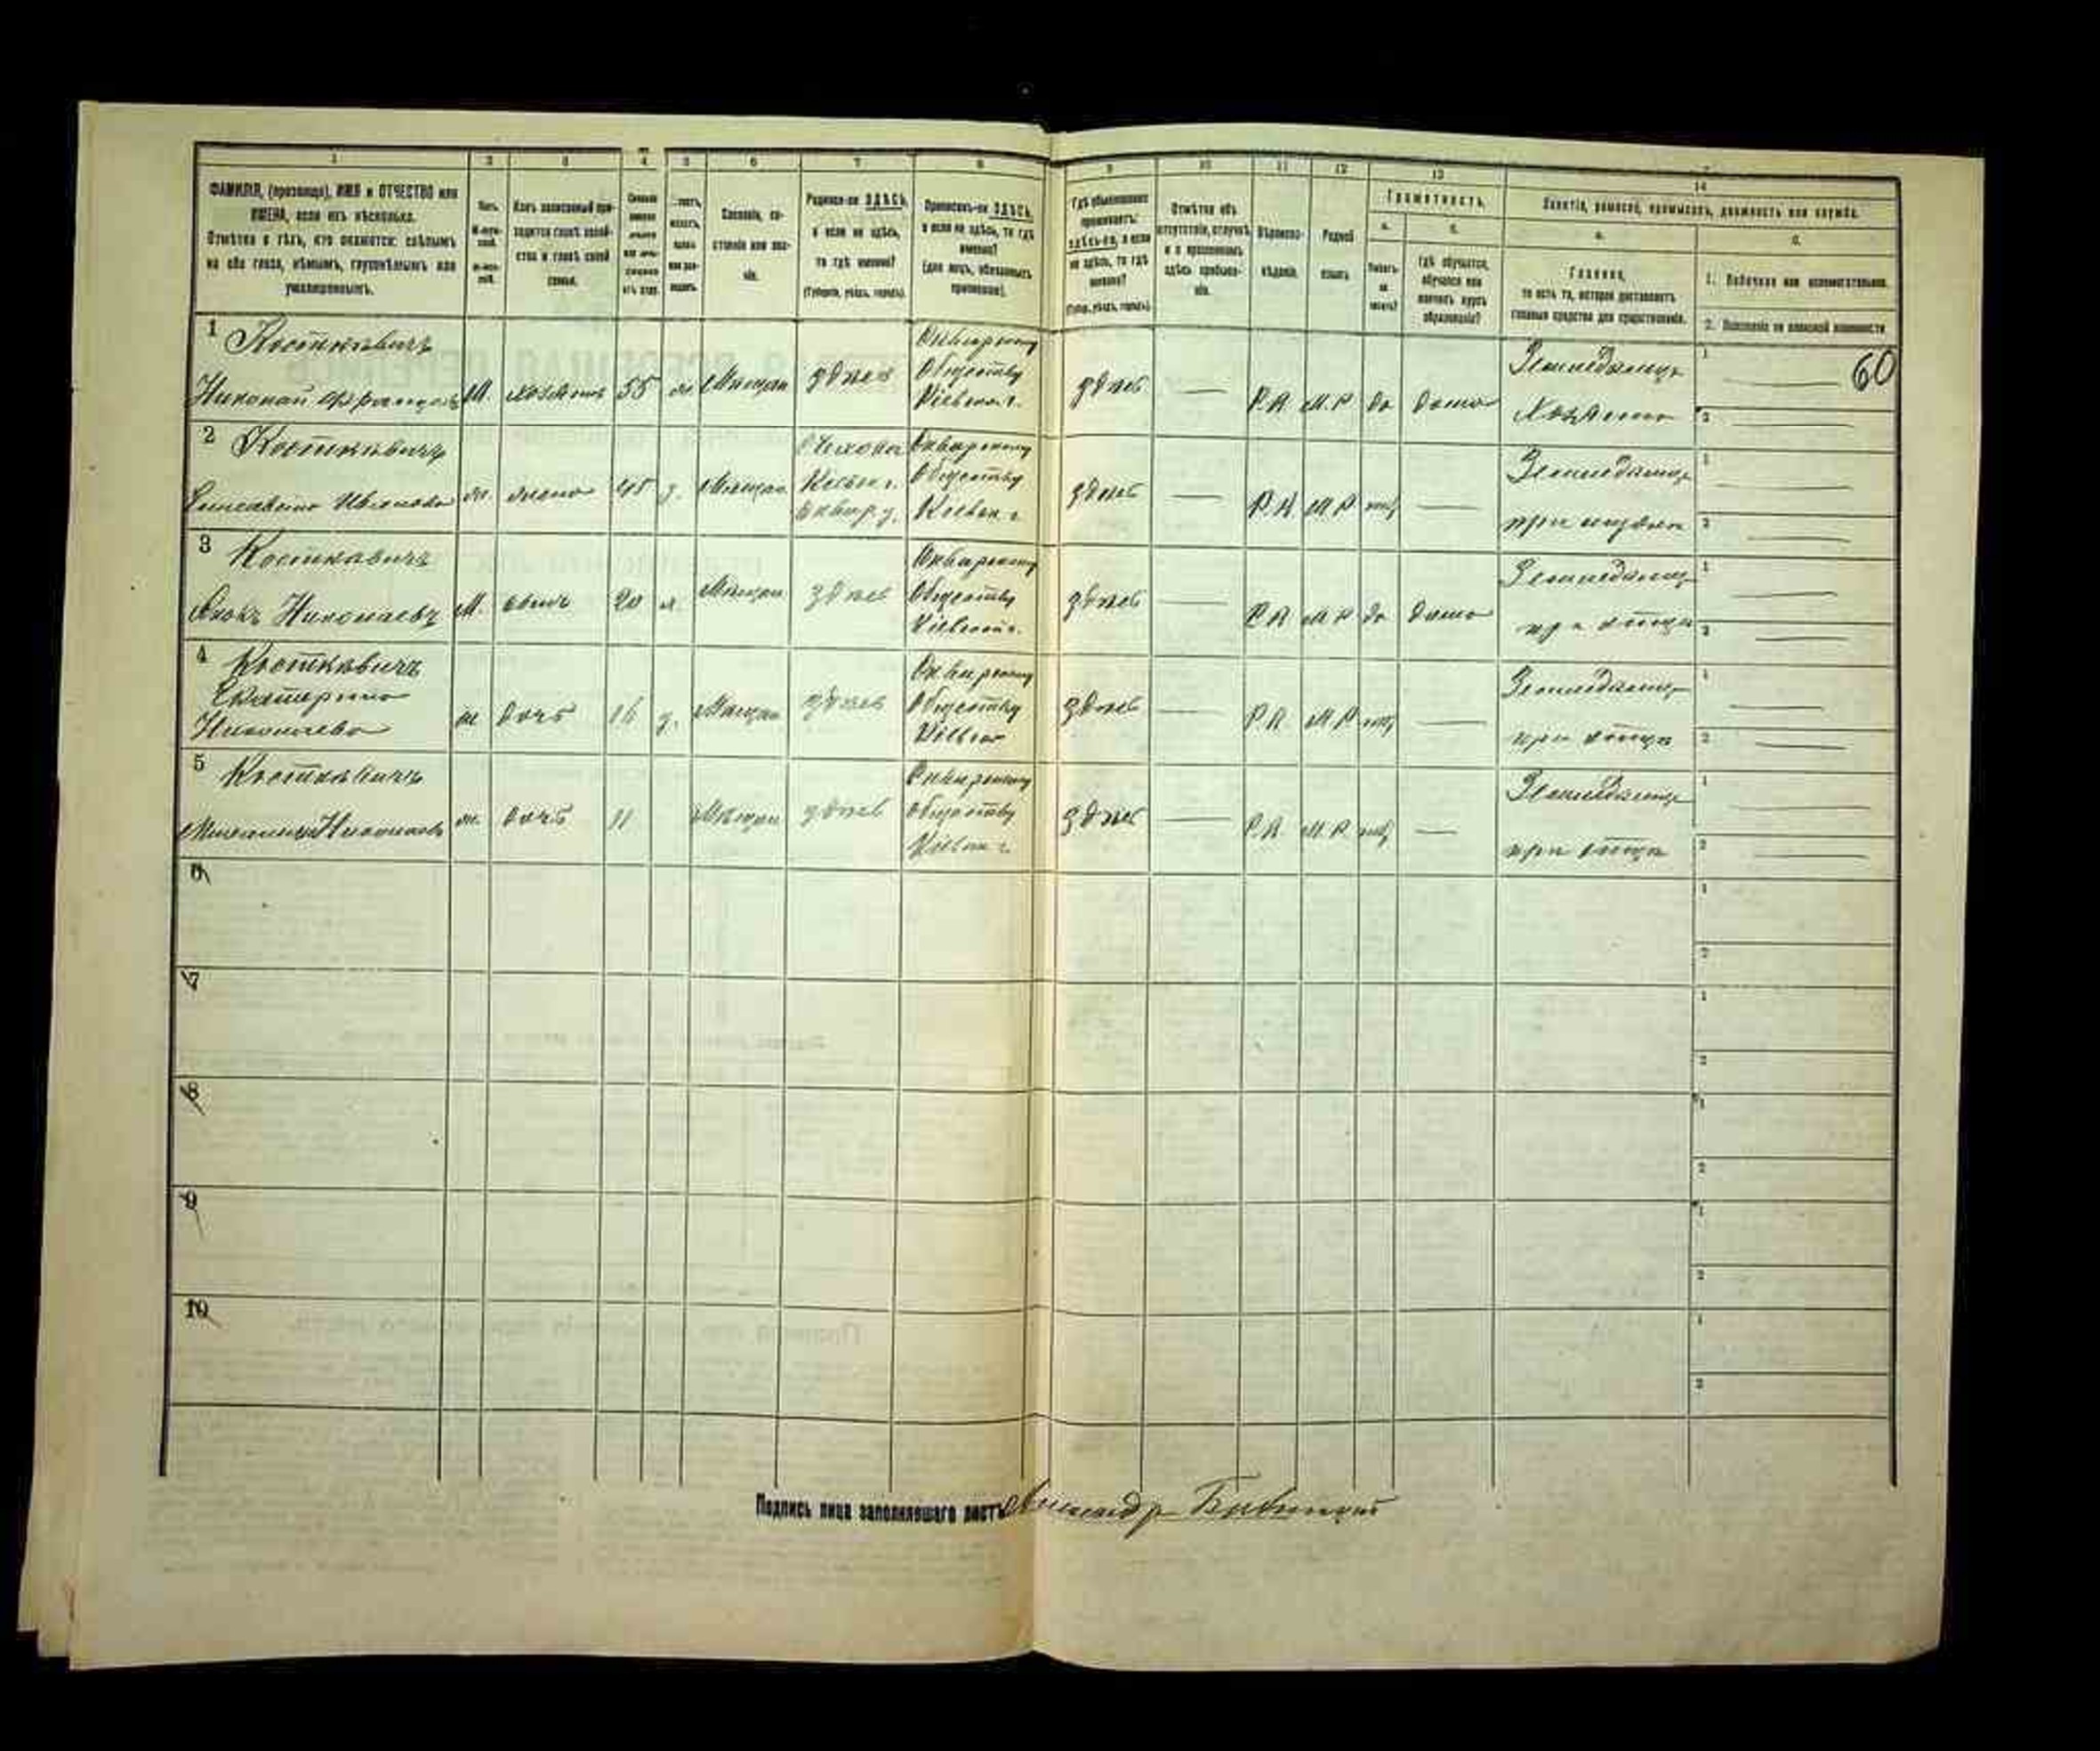 1 2 3 4 5 6 7 8 9 10 11 12 13 14
ФАМИЛІЯ, (прозвище), ИМЯ и ОТЧЕСТВО или
ИМЕНА, если ихъ нѣсколько.
Отмѣтка о тѣхъ, кто окажется: слѣпымъ
на оба глаза, нѣмымъ, глухонѣмымъ или
умалишеннымъ.
Полъ.
Какъ записанный при-
ходится главѣ хозяй-
ства и главѣ своей
семьи.
Сословіе, со-
стояніе или зва-
ніе.
Родился-ли ЗДѢСЬ,
а если не здѣсь,
то гдѣ именно?
(Губернія, уѣздъ, городъ).
Приписанъ-ли ЗДѢСЬ,
а если не здѣсь, то гдѣ
именно?
(для лицъ, обязанныхъ
припискою).
Гдѣ обыкновенно
проживаетъ:
здѣсь-ли, а если
не здѣсь, то гдѣ
именно?
(Губер., уѣздъ, городъ).
Отмѣтка объ
отсутствіи, отлучкѣ
и о временномъ
здѣсь пребыва-
ніи.
Вѣроиспо-
вѣданіе.
Родной
языкъ.
Грамотность.
а. б.
Умѣетъ-
ли
читать?
Гдѣ обучается,
обучался или
кончилъ курсъ
образованія?
Занятіе, ремесло, промыселъ, должность или служба.
а. б.
Главное,
то есть то, которое доставляетъ
главныя средства для существованія.
1. Побочное или вспомогательное.
2. Положеніе по воинской повинности
60
1 Косткевичъ
Николай Францовъ М. хозяинъ 55 Мѣщан здѣсь
Сквирскому
Обществу
Кіевск. г.
здѣсь — Р.К. М.Р. да дома
Земледѣлецъ
Хозяинъ
1 —
2 —
2 Косткевичъ
Елисавета Иванова ж. жена 45 з. Мѣщан
Кіевск. г.
Сквир. у.
Сквирскому
Обществу
Кіевск. г.
здѣсь — Р.К. М.Р. нѣтъ —
Земледѣлецъ
при мужѣ
1 —
2 —
3 Косткевичъ
Яковъ Николаевъ М. сынъ 20 х. Мѣщан здѣсь
Сквирскому
Обществу
Кіевской г.
здѣсь — Р.К. М.Р. да дома
Земледѣлецъ
при отцѣ
1 —
2 —
4 Косткевичъ
Екатерина
Николаева ж дочь 16 д. Мѣщан здѣсь
Сквирскому
Обществу
Кіевск
здѣсь — Р.К. М.Р. нѣтъ —
Земледѣлецъ
при отцѣ
1 —
2 —
5 Косткевичъ
Николаева ж. дочь 11 Мѣщан здѣсь
Сквирскому
обществу
Кіевск г.
здѣсь — Р.К. М.Р. нѣтъ —
Земледѣлецъ
при отцѣ
1 —
2 —
6
1
2
7
1
2
8
1
2
9
1
2
10
1
2
Подпись лица заполнявшаго листъ Александр